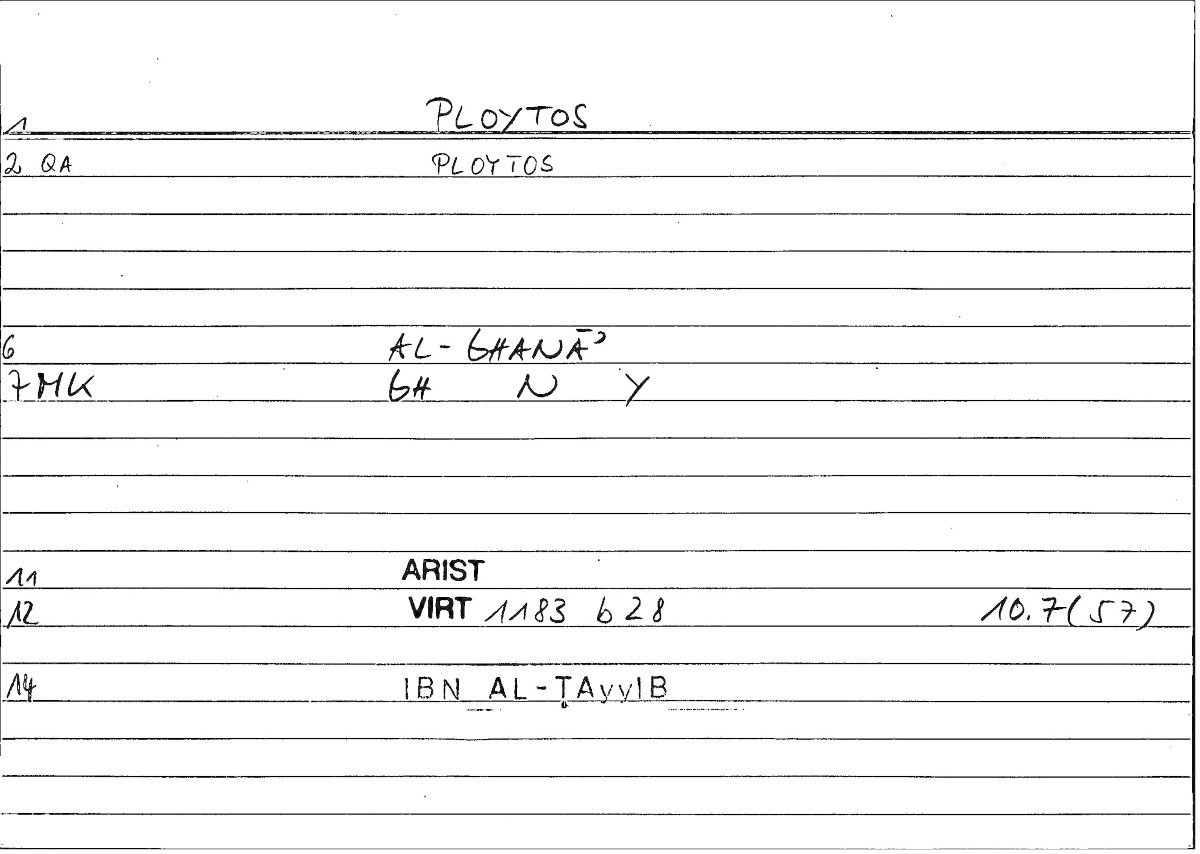 1 PLOYTOS
2 QA PLOYTOS
6 AL-GHANĀʾ
7 MK GH N Y
11 ARIST
12 VIRT 1183 b 28 10.7(57)
14 IBN AL-ṬAyyIB